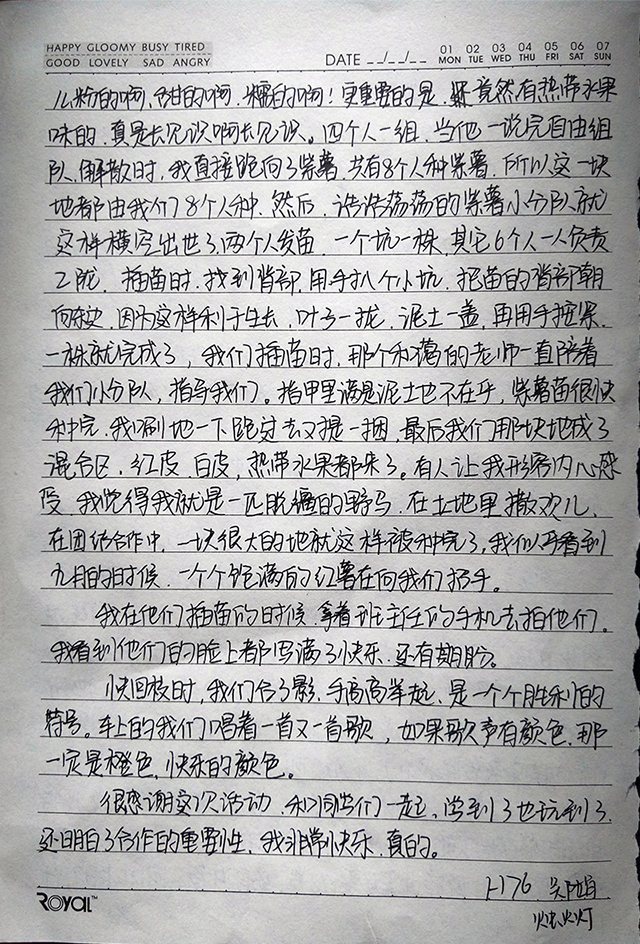 HAPPY GLOOMY BUSY TIRED
GOOD LOVELY SAD ANGRY
DATE __/__/__
01 02 03 04 05 06 07
MON TUE WED THU FRI SAT SUN
么粉的啊,甜的啊,糯的啊!更重要的是,竟然有热带水果
味的,真是长见识啊长见识。四个人一组,当他一说完自由组
队,解散时,我直接跑向了紫薯,共有8个人种紫薯,所以这一块
地都由我们8个人种,然后,浩浩荡荡的紫薯小分队就
这样横空出世了,两个人发苗,一个坑一株,其它6个人一人负责
2陇,插苗时,找到背部,用手扒个小坑,把苗的背部朝
向,因为这样利于生长,叶子一拢,泥土一盖,再用手捏紧,
一株就完成了,我们插苗时,那个和蔼的老师一直陪着
我们小分队,指导我们。指甲里满是泥土也不在乎,紫薯苗很快
种完,我唰地一下跑过去又提一捆,最后我们那块地成了
混合区,红皮,白皮,热带水果都来了。有人让我形容内心感
受,我觉得我就是一匹脱缰的野马,在土地里撒欢儿,
在团结合作中,一块很大的地就这样被种完了,我似乎看到
九月的时候,一个个饱满的红薯在向我们招手。
我在他们插苗的时候,拿着班主任的手机去拍他们。
我看到他们的脸上都写满了快乐,还有期盼。
快回校时,我们合了影,手高高举起,是一个个胜利的
符号。车上的我们唱着一首又一首歌,如果歌声有颜色,那
一定是橙色,快乐的颜色。
很感谢这次活动,和同学们一起,学到了也玩到了,
还明白了合作的重要性,我非常快乐,真的。
ROYAL™